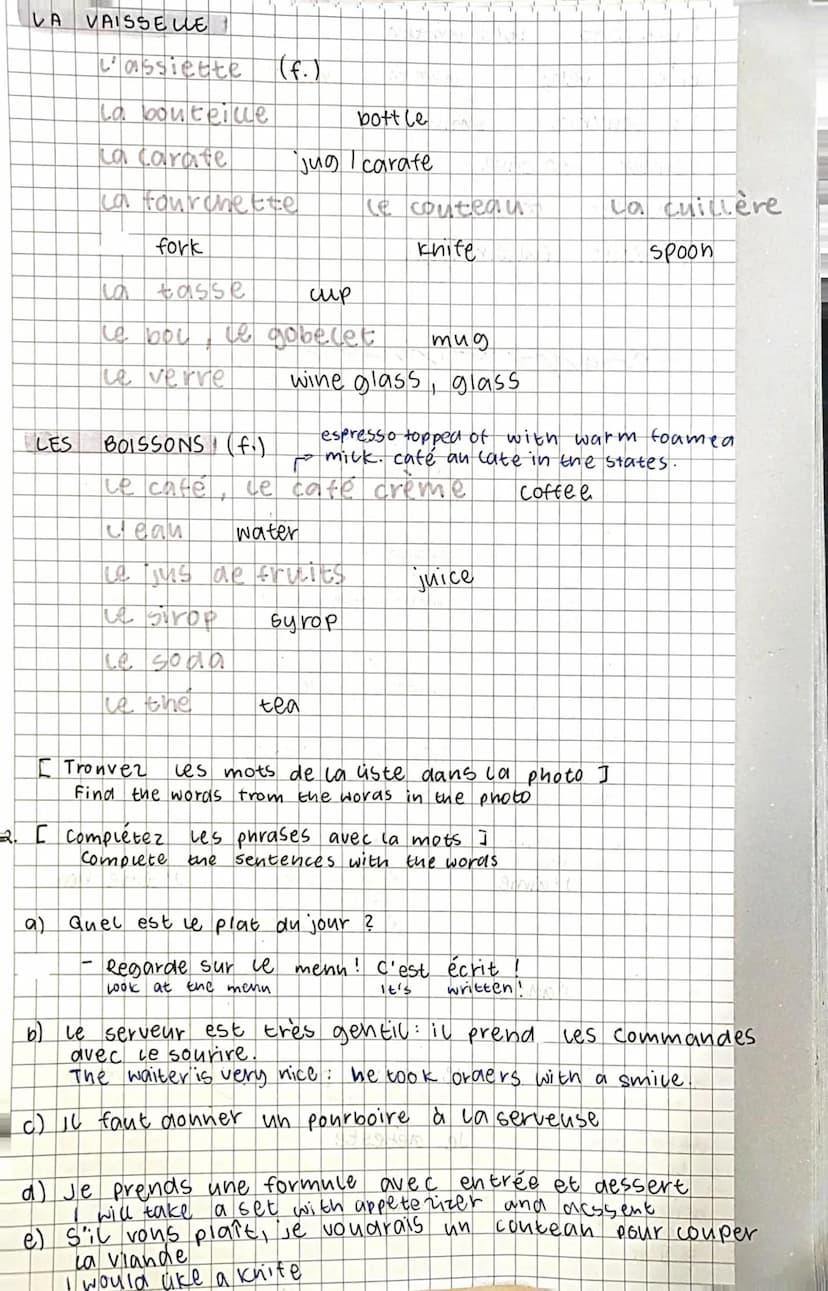 LA VAISSELLE
L'assiette (f.)
La bouteille bottle
La carafe jug / carafe
La fourchette le couteau La cuillère
fork knife spoon
La tasse cup
Le bol, le gobelet mug
Le verre wine glass, glass
LES BOISSONS (f.)
espresso topped of with warm foamed
milk. café au late in the states.
Le café, le café crème coffee
L'eau water
Le jus de fruits juice
Le sirop syrop
Le soda
Le thé tea
[ Trouvez les mots de la liste dans la photo ]
Find the words from the words in the photo
2. [ Complétez les phrases avec la mots ]
Complete the sentences with the words
a) Quel est le plat du jour ?
- Regarde sur le menu! C'est écrit !
Look at the menu It's written!
b) Le serveur est très gentil : il prend les commandes
avec le sourire.
The waiter is very nice : he took orders with a smile.
c) Il faut donner un pourboire à la serveuse
d) Je prends une formule avec entrée et dessert
I will take a set with appeterizer and dessent
e) S'il vous plaît, je voudrais un couteau pour couper
la viande
I would like a knife